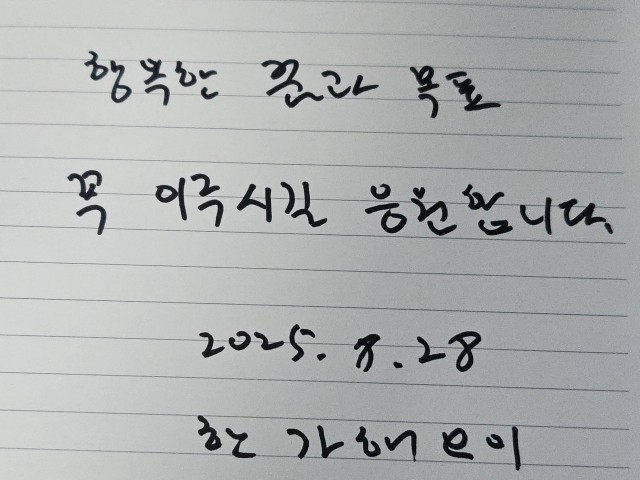 행복한 꿈과 목표
꼭 이루시길 응원합니다.
2025. 8. 28
한 가해 드이